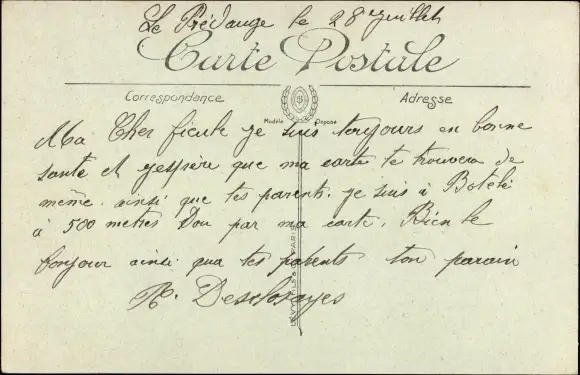 Le Prédauge le 28 juillet
Carte Postale
Correspondance
Adresse
Modèle Déposé
Ma Cher ficule je suis toujours en bonne
santé et j'espère que ma carte te trouvera de
même. ainsi que tes parents. je suis à
à 500 mètres Dou par ma carte. Bien le
bonjour ainsi que tes parents ton parain
R. Desclosayes
LEVY FILS & Cie PARIS